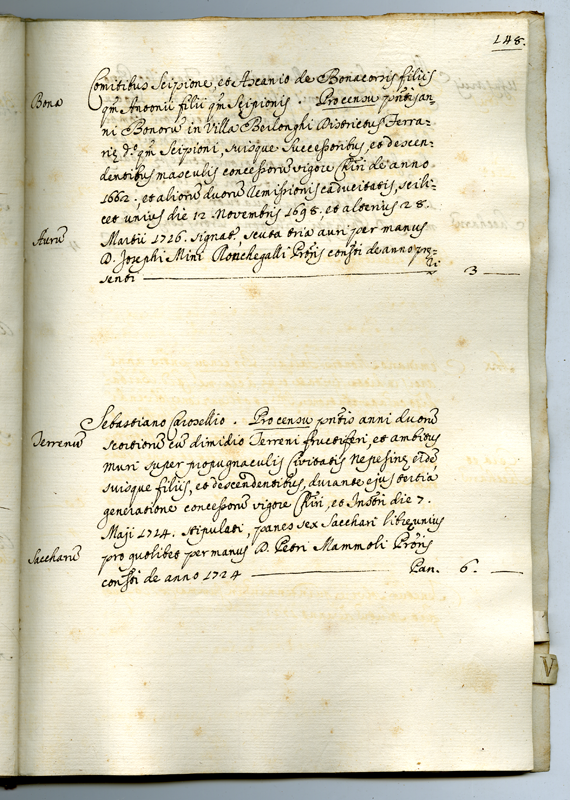 148.
Comitibus Scipione, et Ascanio de Bonacorsis filiis
Bona
qm̄ Antonii filii qm̄ Scipionis. Pro censu pn̄tis an=
ni Bonorū in Villa Berlonghi Districtus Ferra=
rię d.o qm̄ Scipioni, suisque successoribus, et descen=
dentibus masculis concessorū vigore Chiri de anno
1662. et aliorū duorū remissionis caducitatis, scili=
cet unius die 12 Novembris 1698. et alterius 28.
Aurū
Martii 1726. signat. scuta tria auri per manus
D. Josephi Mini Ronchegalli Pro͞ris const̄i de anno prę=
senti 3
Sebastiano Carosellio. Pro censu pn̄tis anni duorū
Terrenū
scortiorū cū dimidio Terreni fructiferi, et ambitus
muri super propugnaculis Civitatis Nepesinę eidē,
suisque filiis, et descendentibus, durante ejus tertia
generatione concessorū vigore Chiri, et Instri die 7.
Maji 1714. stipulati, panes sex Sacchari librę unius
Saccharū
pro quolibet per manus D. Petri Mammoli Pro͞ris
const̄i de anno 1724 Pan. 6.
V